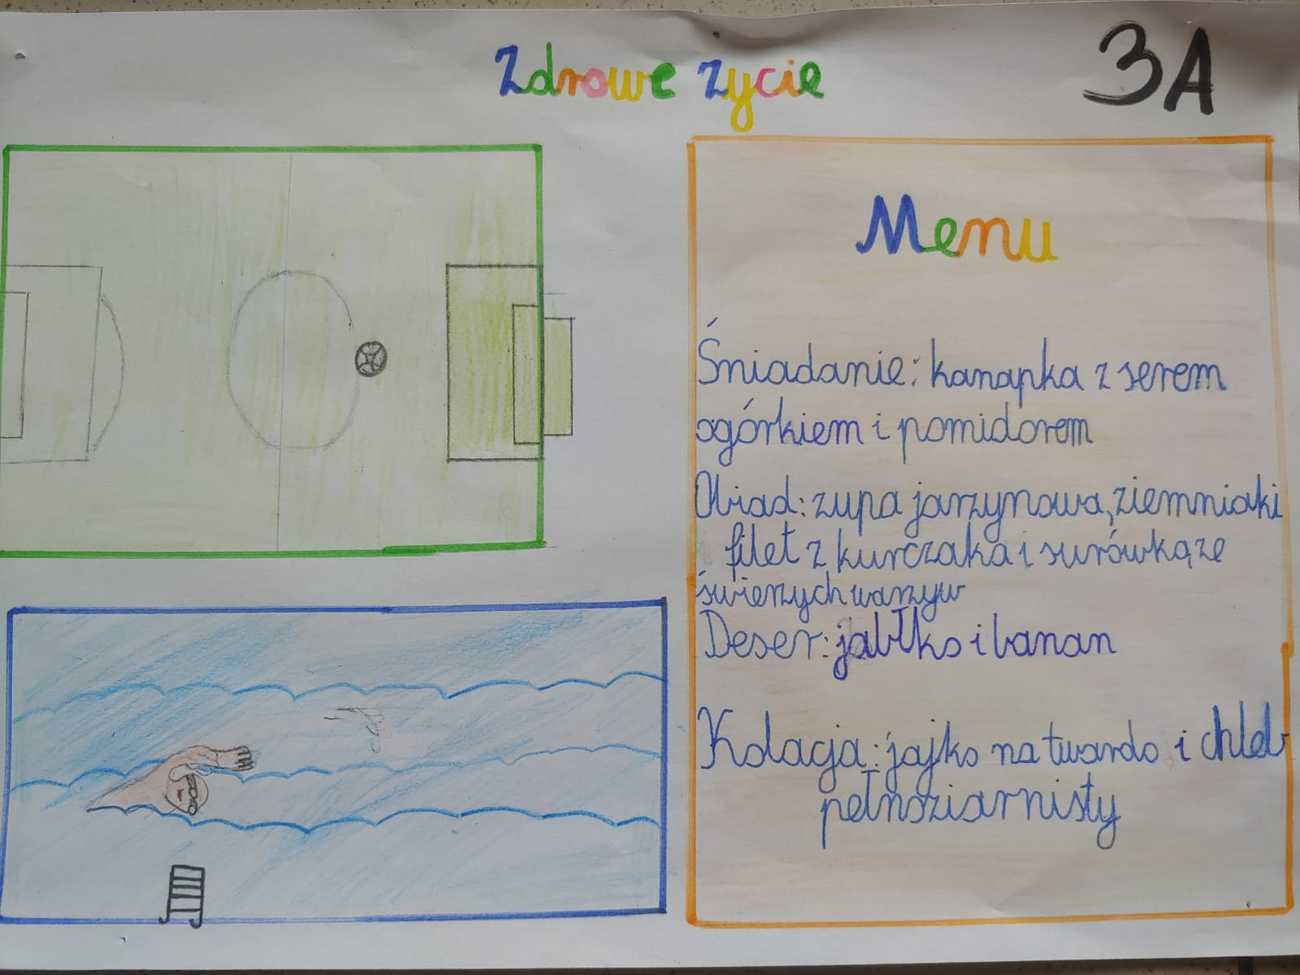 Zdrowe życie
3A
Menu
Śniadanie: kanapka z serem
ogórkiem i pomidorem
Obiad: zupa jarzynowa, ziemniaki
filet z kurczaka i surówką ze
świerzych warzyw
Deser: jabłko i banan
Kolacja: jajko na twardo i chleb
pełnoziarnisty